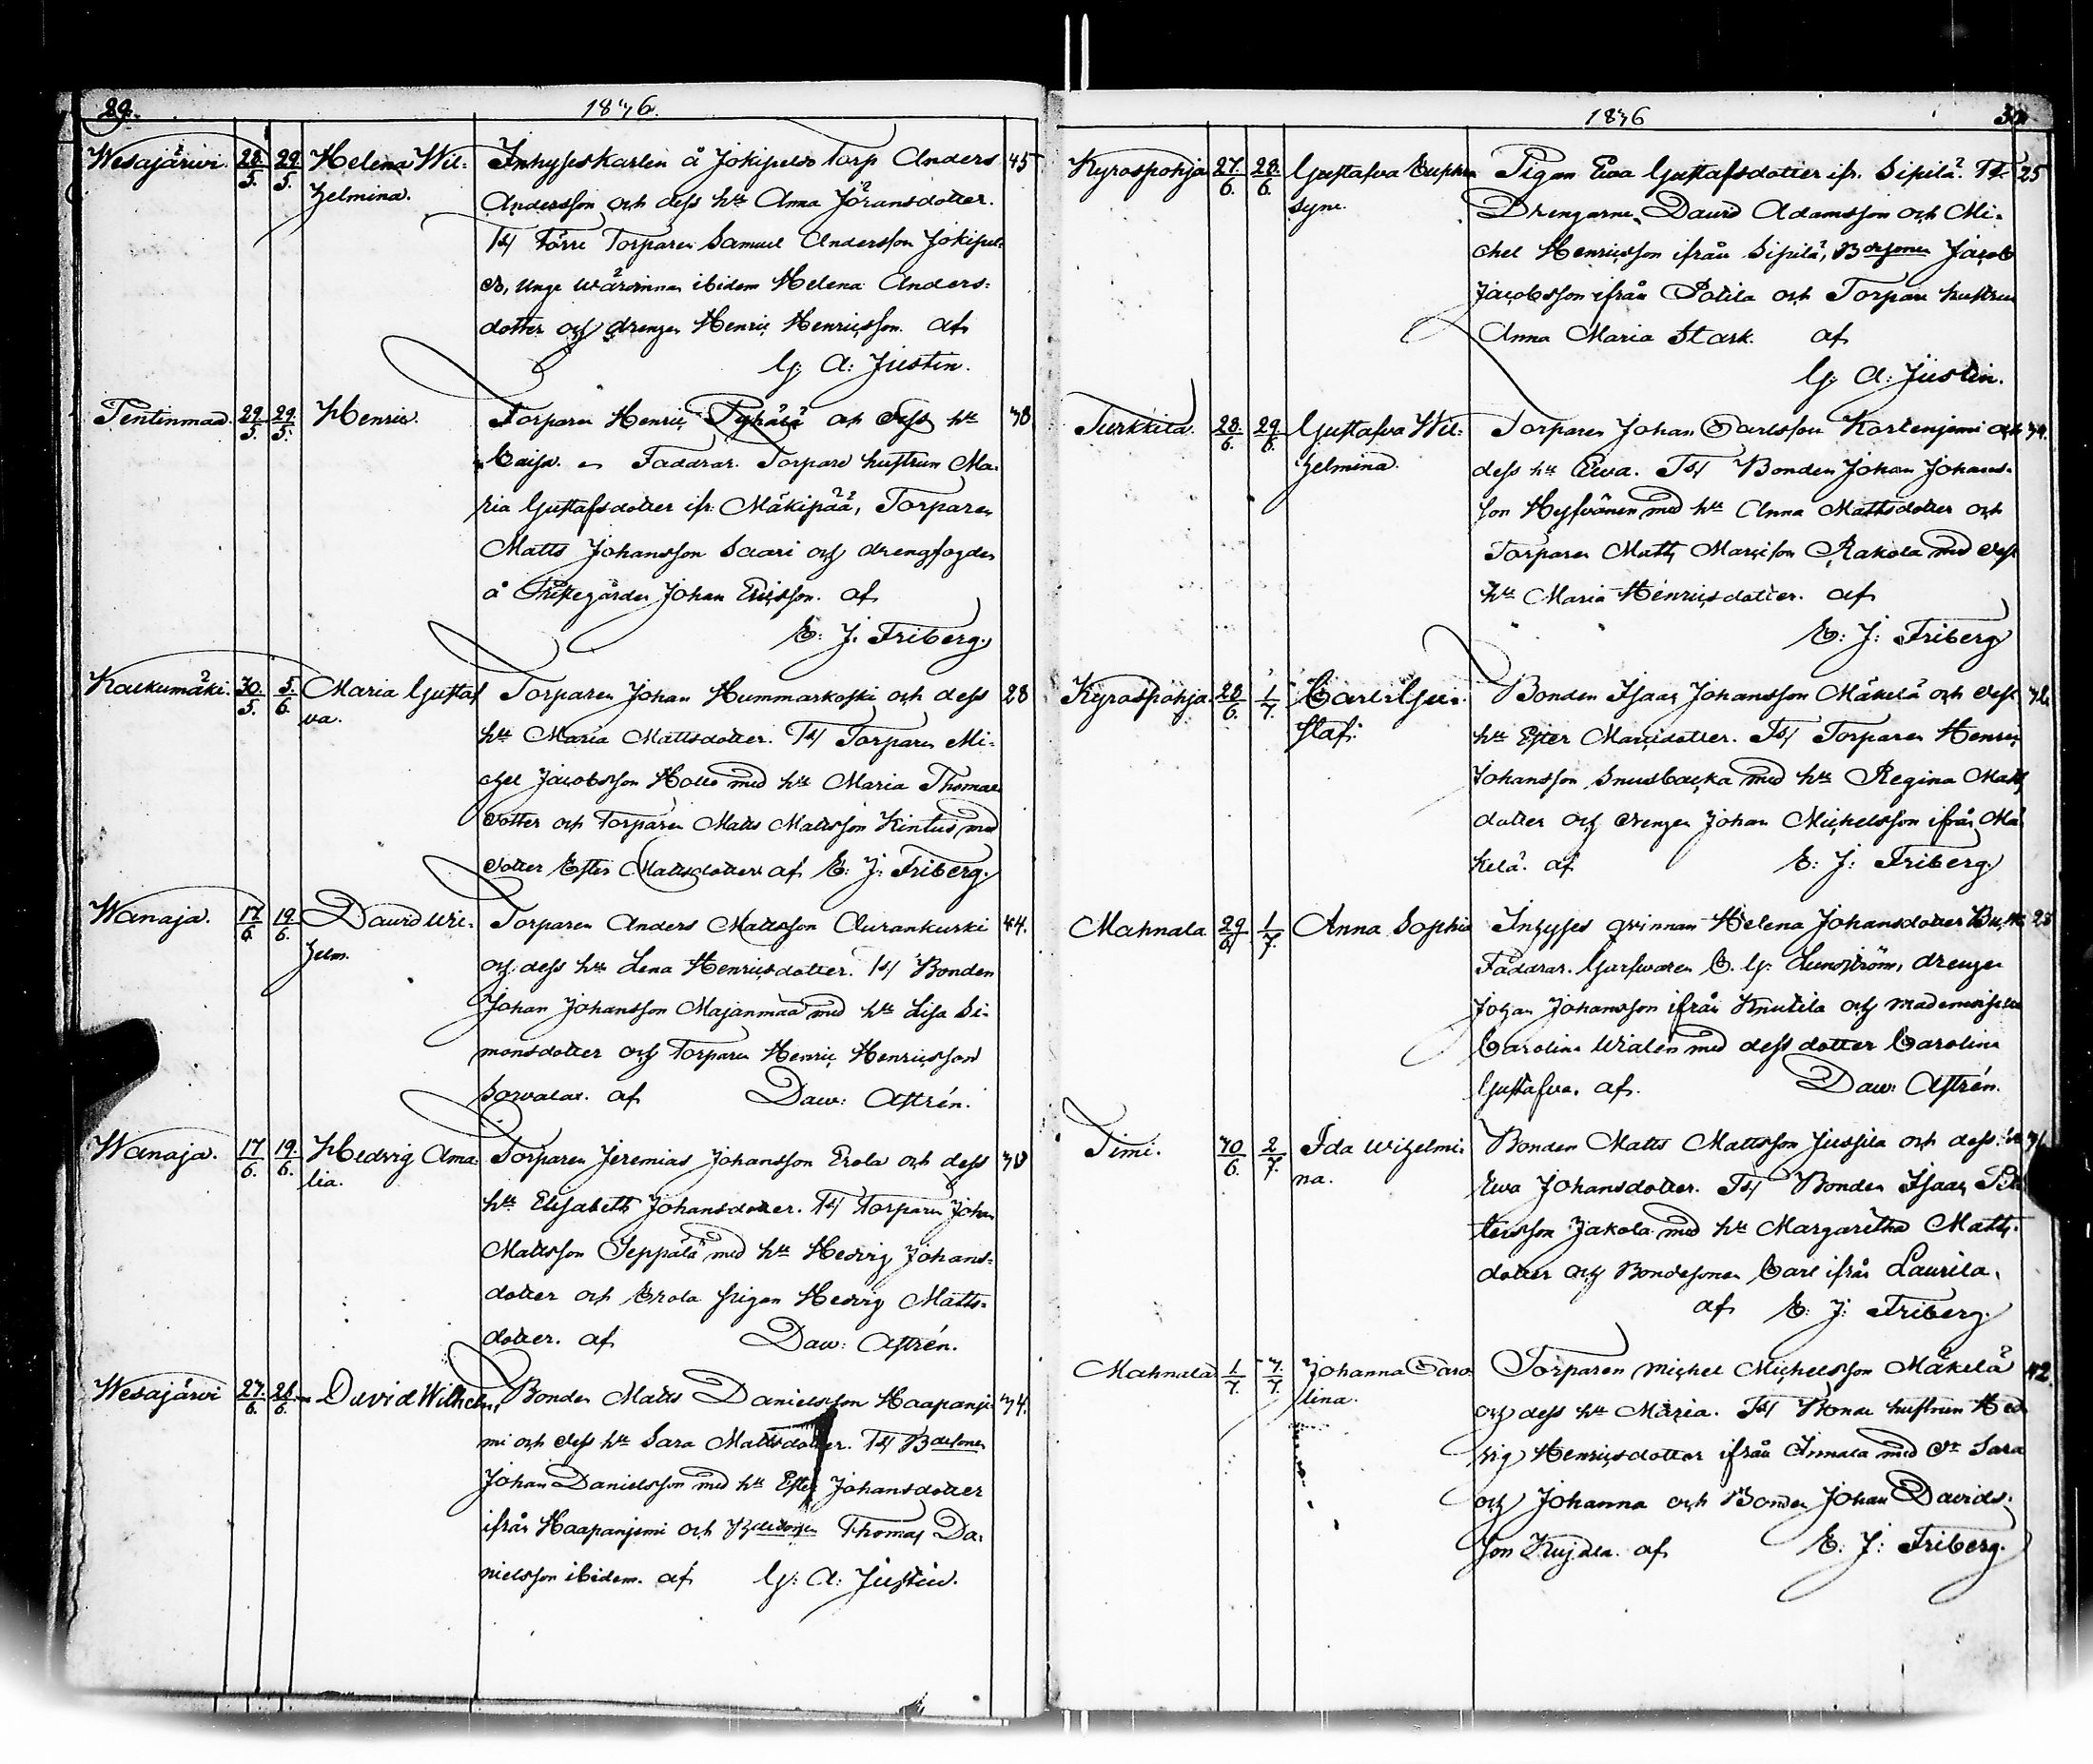 29.
1836.
Wesajärwi. 28/5. 29/5. Helena Wil- Inhyseskarlen å Jokipelds Torp Anders 45
helmina. Andersson och dess hu Anna Jöransdotter.
Förre Torparen Samuel Andersson Jokipel-
unge wärdinnan ibidem Helena Anders-
dotter och drengen Henric Henricsson. af
G: A: Justin.
Pentinmaa. 29/5. 29/5. Henric. Torparen Henric Pyhäjä och dess hu 38
Caisa. Faddrar. Torpare hustrun Ma-
ria Gustafsdotter ifr. Mäkipää, Torparen
Matts Johansson Saari och drengfogden
å Prestegården Johan Ericsson. af
E: J: Friberg.
Kalkumäki. 30/5. 5/6. Maria Gustaf Torparen Johan Hummarkoski och dess 28
va. hu Maria Mattsdotter. Torparen Mi-
chel Jacobsson Holle med hu Maria Thomas
dotter och Torparen Matts Mattsson Kintus med
dotter Ester Mattsdotter af E: J: Friberg.
Wanaja. 17/6. 19/6. David Wil- Torparen Anders Mattsson Aurankurki 44.
helm. och dess hu Lena Henricsdotter. Bonden
Johan Johansson Majanmaa med hu Lisa Si-
monsdotter och Torparen Henric Henricsson
Sorvala. af Daw: Astrén.
Wanaja. 17/6. 19/6. Hedvig Ama- Torparen Jeremias Johansson Erola och dess 30
lia. hu Elisabeth Johansdotter. Torparen Johan
Mattsson Seppälä med hu Hedvig Johans-
dotter och Erola pigan Hedvig Matts-
dotter. af Daw: Astrén.
Wesajärvi 27/6. 28/6. David Wilhelm, Bonden Matts Danielsson Haapanje- 34.
mi och dess hu Sara Mattsdotter. Bdesonen
Johan Danielsson med hu Ester Johansdotter
ifrån Haapanjemi och Thomas Da-
nielsson ibidem. af G: A: Justin.
1836
30.
Kyrospohja 27/6. 28/6. Gustafva Euphro Pigan Ewa Gustafsdotter ifr. Sipilä. 25
syne. Drengarne David Adamsson och Mi-
chel Henricsson ifrån Sipilä, Bdesonen Jacob
Jacobsson ifrån Potila och Torpare hustrun
Anna Maria Stark. af
G: A: Justin.
Turkkila. 28/6. 29/6. Gustafva Wil- Torparen Johan Carlsson Kortenjemi och 34.
helmina. dess hu Ewa. Bonden Johan Johans-
son Hyfvönen med hu Anna Mattsdotter och
Torparen Matts Marcison Rakola med dess
hu Maria Henricsdotter. af
E: J: Friberg
Kyrospohja. 28/6. 1/7. Carl Gu- Bonden Isaac Johansson Mäkelä och dess
staf. hu Ester Marcidotter. Torparen Henric
Johansson Snusbacka med hu Regina Matts
dotter och drengen Johan Michelsson ifrån Mä
kelä. af E: J: Friberg.
Mahnala 29/6 1/7. Anna Sophia Inhyses qvinnan Helena Johansdotter 28
Faddrar. Garfvaren C. G: Lundström, drengen
Johan Johansson ifrån Knutila och mademoiselle
Carolina Wialén med dess dotter Carolina
Gustafva. af. Daw: Astrén.
Timi. 30/6. 2/7. Ida Wilhelmi- Bonden Matts Mattsson Jussila och dess hu
na. Ewa Johansdotter. Bonden Isaac
tersson Jakola med hu Margaretha Matts-
dotter och Bondesonen Carl ifrån Laurila.
af E: J: Friberg
Mahnala 1/7. 3/7. Johanna Caro Torparen Michel Michelsson Mäkelä 42.
lina. och dess hu Maria. Bonde hustrun Hed
vig Henricsdotter ifrån Annala med Sara
och Johanna och Bonden Johan Davids-
son Kujala. af E: J: Friberg.